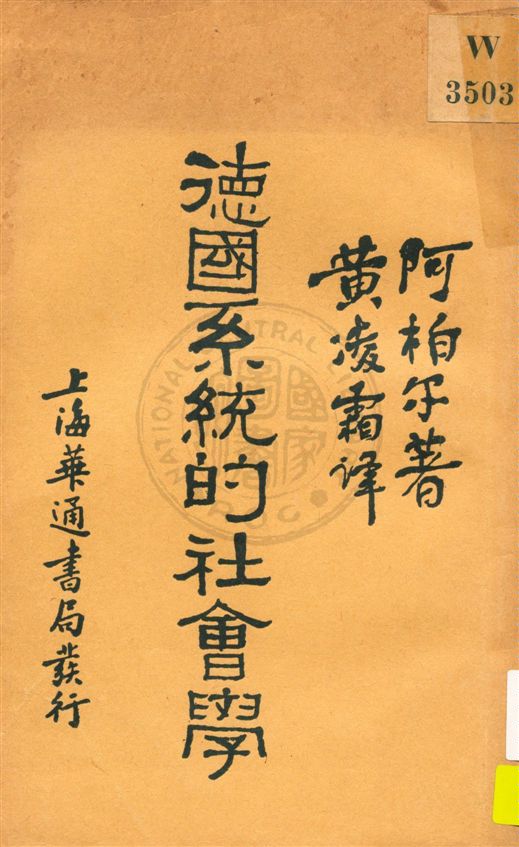 W
3503
阿柏尔著
黄凌霜譯
德國系統的社會學
上海華通書局發行
NATIONAL CENTRAL
國家圖書館
R.O.C.